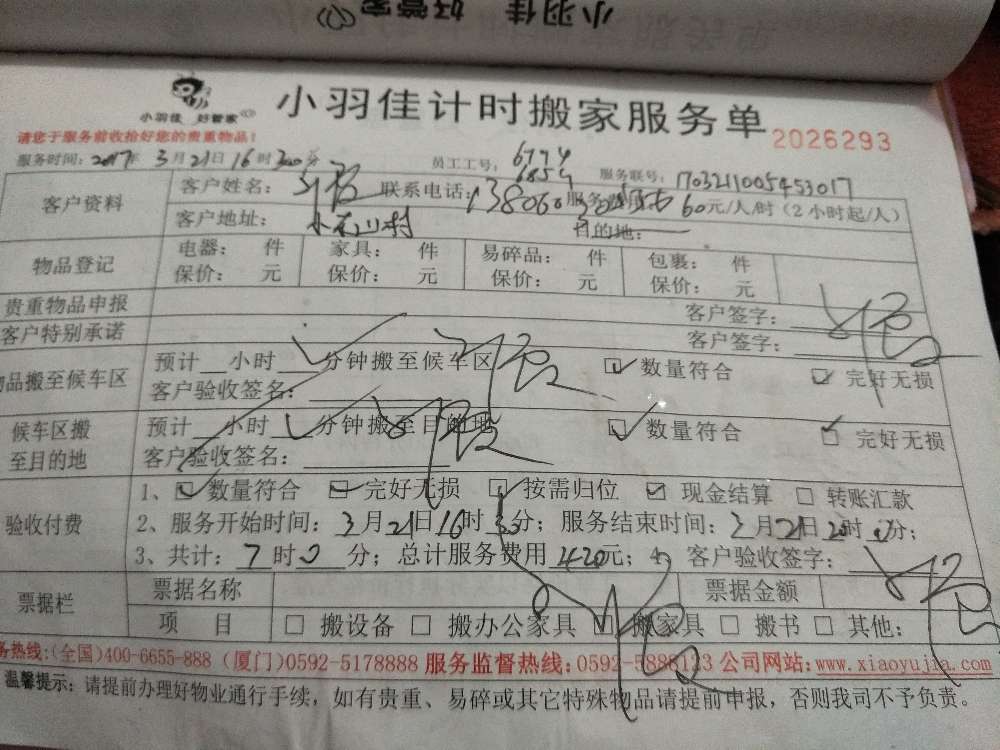 小羽佳 好管家
小羽佳 好管家
小羽佳计时搬家服务单
2026293
请您于服务前收拾好您的贵重物品!
服务时间: 2017年 3月21日16时30分 员工工号: 6774 6854 服务联号: 1703211005453017
客户资料 客户姓名: 联系电话: 138060 60元/人/时(2小时起/人)
客户地址: 目的地:
物品登记 电器: 件 家具: 件 易碎品: 件 包裹: 件
保价: 元 保价: 元 保价: 元 保价: 元
贵重物品申报 客户签字:
客户特别承诺 客户签字:
物品搬至候车区 预计 小时 分钟搬至候车区 数量符合 完好无损
客户验收签名:
候车区搬至目的地 预计 小时 分钟搬至目的地 数量符合 完好无损
客户验收签名:
验收付费 1、 数量符合 完好无损 按需归位 现金结算 转账汇款
2、服务开始时间: 3月21日16时30分; 服务结束时间: 3月21日20时0分;
3、共计: 7时0分; 总计服务费用420元; 4、客户验收签字:
票据栏 票据名称 票据金额
项 目 搬设备 搬办公家具 搬家具 搬书 其他:
务热线:(全国)400-6655-888 (厦门)0592-5178888 服务监督热线:0592-5886123 公司网站:www.xiaoyujia.com
温馨提示: 请提前办理好物业通行手续, 如有贵重、易碎或其它特殊物品请提前申报, 否则我司不予负责。